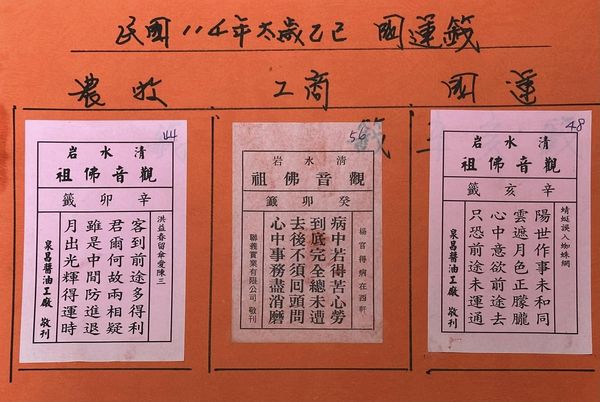 民國114年太歲乙巳 國運籤
農收
工商
國運
44
清水岩
觀音佛祖
辛卯籤
洪益春留傘愛陳三
客到前途多得利
君爾何故兩相疑
雖是中間防進退
月出光輝得運時
泉昌醬油工廠 敬刊
56
清水岩
觀音佛祖
癸卯籤
楊官得病在西軒
病中若得苦心勞
到底完全總未遭
去後不須回頭問
心中事務盡消磨
聯義實業有限公司 敬刊
48
清水岩
觀音佛祖
辛亥籤
蜻蜓誤入蜘蛛網
陽世作事未和同
雲遮月色正朦朧
心中意欲前途去
只恐前途未運通
泉昌醬油工廠 敬刊